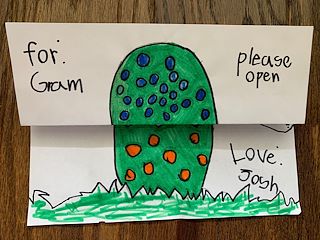 for:
Gram
please
open
Love:
Josh